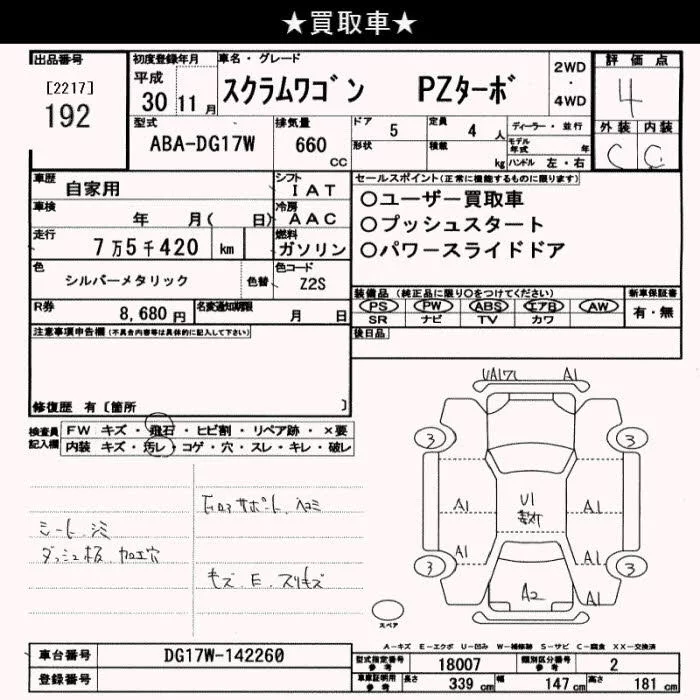 ★買取車★
出品番号
[2217]
192
初度登録年月
平成
30 11 月
車名・グレード
スクラムワゴン PZターボ
2WD
・
4WD
評価点
4
外装 内装
C C
型式
ABA-DG17W
排気量
660
CC
ドア 5
定員 4 人
ディーラー・並行
形状
積載
kg
モデル年式 年
ハンドル 左・右
車歴
自家用
シフト
IAT
車検
年 月( 日)
冷房
AAC
走行
7万5千420 km
燃料
ガソリン
色
シルバーメタリック
色替
色コード
Z2S
R券
8,680 円
名変通知期限
月 日
セールスポイント(正常に機能するものに限ります)
○ユーザー買取車
○プッシュスタート
○パワースライドドア
装備品(純正品に限り○をつけてください)
PS PW ABS エアB AW
SR ナビ TV カワ
新車保証書
有・無
後日品
注意事項申告欄(不具合内容等は具体的に記入して下さい)
修復歴 有〔箇所 〕
検査員
記入欄
FW キズ・飛石・ヒビ割・リペア跡・×要
内装 キズ・汚レ・コゲ・穴・スレ・キレ・破レ
シート シミ
ダッシュ板 加工穴
サポート、ヘコミ
キズ E スリキズ
A1
3 3
A1 U1 A1
A1 A1
3 A2 3
スペア
A-キズ E-エクボ U-凹み W-補修跡 S-サビ C-腐食 XX-交換済
車台番号
DG17W-142260
登録番号
型式指定番号
参考
18007
類別区分番号
参考
2
車庫証明用
参考
長さ 339 cm 幅 147 cm 高さ 181 cm